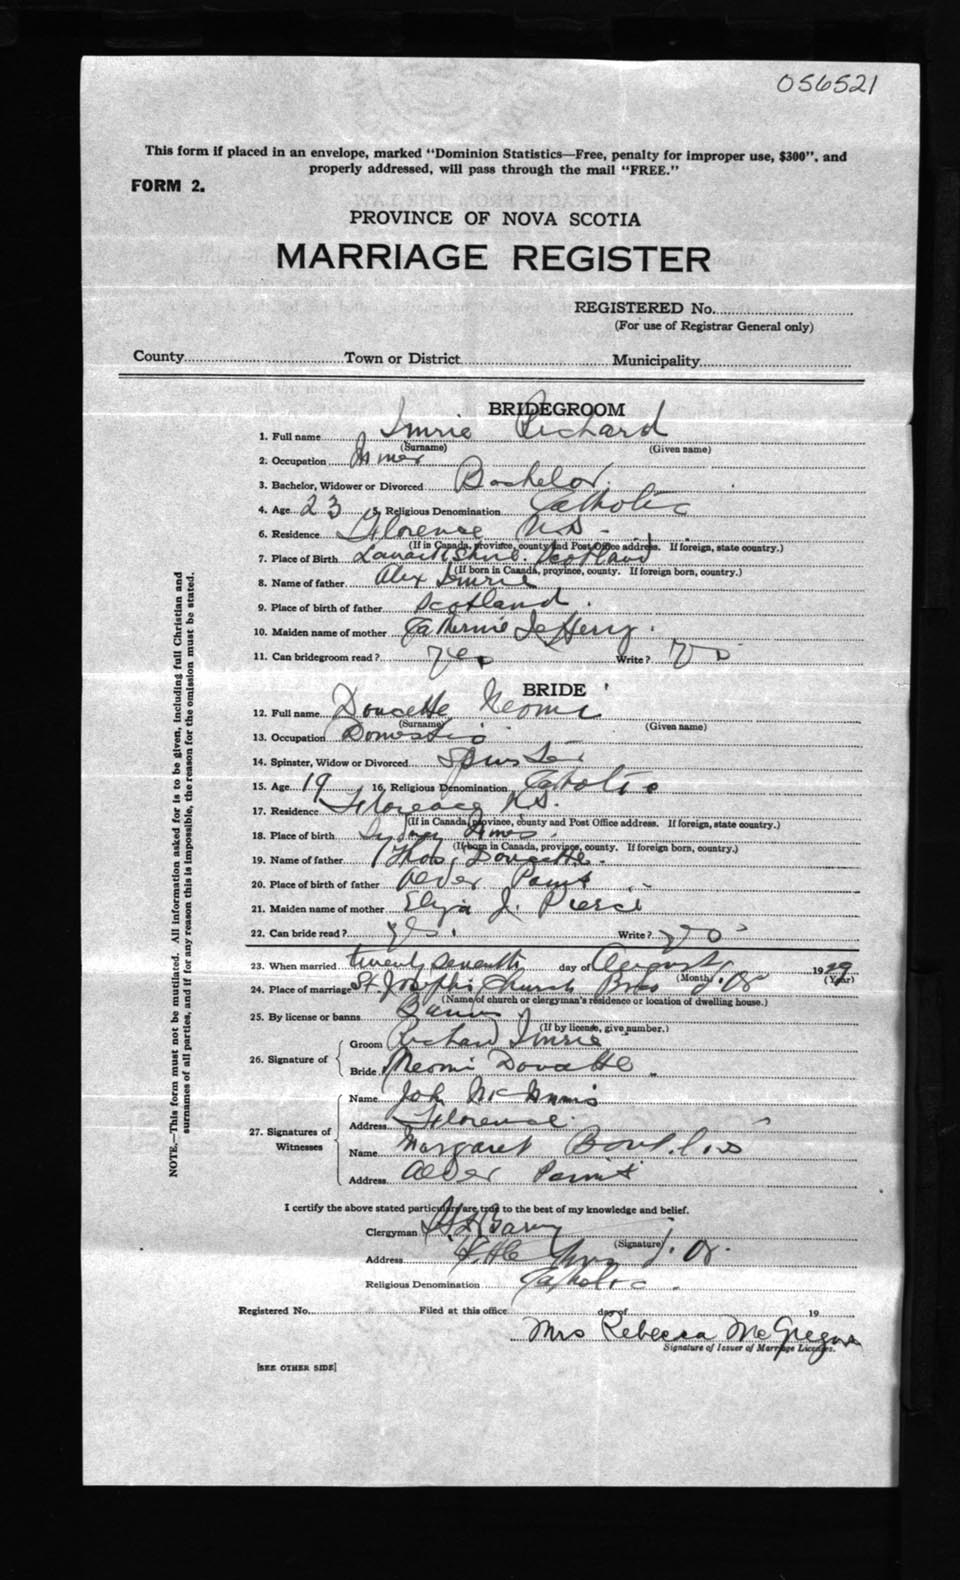 056521
This form if placed in an envelope, marked "Dominion Statistics—Free, penalty for improper use, $300", and
properly addressed, will pass through the mail "FREE."
FORM 2.
PROVINCE OF NOVA SCOTIA
MARRIAGE REGISTER
REGISTERED No.
(For use of Registrar General only)
County Town or District Municipality
BRIDEGROOM
1. Full name Imrie Richard
(Surname) (Given name)
2. Occupation Miner
3. Bachelor, Widower or Divorced Bachelor.
4. Age 23 5. Religious Denomination Catholic
6. Residence Florence N.S.
(If in Canada, province, county and Post Office address. If foreign, state country.)
7. Place of Birth Lanarkshire. Scotland
(If born in Canada, province, county. If foreign born, country.)
8. Name of father Alex Imrie
9. Place of birth of father Scotland.
10. Maiden name of mother Catherine Jeffery.
11. Can bridegroom read? Yes Write? Yes
BRIDE
12. Full name Doucette Neomi
(Surname) (Given name)
13. Occupation Domestic
14. Spinster, Widow or Divorced Spinster
15. Age 19 16. Religious Denomination Catholic
17. Residence Florence N.S.
(If in Canada, province, county and Post Office address. If foreign, state country.)
18. Place of birth Sydney Mines.
(If born in Canada, province, county. If foreign born, country.)
19. Name of father Thos. Doucette.
20. Place of birth of father Alder Point
21. Maiden name of mother Eliza J. Pierce
22. Can bride read? yes. Write? yes
23. When married twenty seventh day of August 1929
(Month) (Year)
24. Place of marriage St Joseph's Church Bras d'Or
(Name of church or clergyman's residence or location of dwelling house.)
25. By license or banns Banns
(If by license, give number.)
26. Signature of
Groom Richard Imrie
Bride Neomi Doucette
27. Signatures of
Witnesses
Name John McInnis
Address Florence.
Name Margaret Boutilier
Address Alder Point
I certify the above stated particulars are true to the best of my knowledge and belief.
Clergyman Barry
(Signature)
Address Little Bras d'Or.
Religious Denomination Catholic.
Registered No. Filed at this office day of 19
Mrs Rebecca McGregor
Signature of Issuer of Marriage Licenses.
[SEE OTHER SIDE]
NOTE.—This form must not be mutilated. All information asked for is to be given, including full Christian and
surnames of all parties, and if for any reason this is impossible, the reason for the omission must be stated.